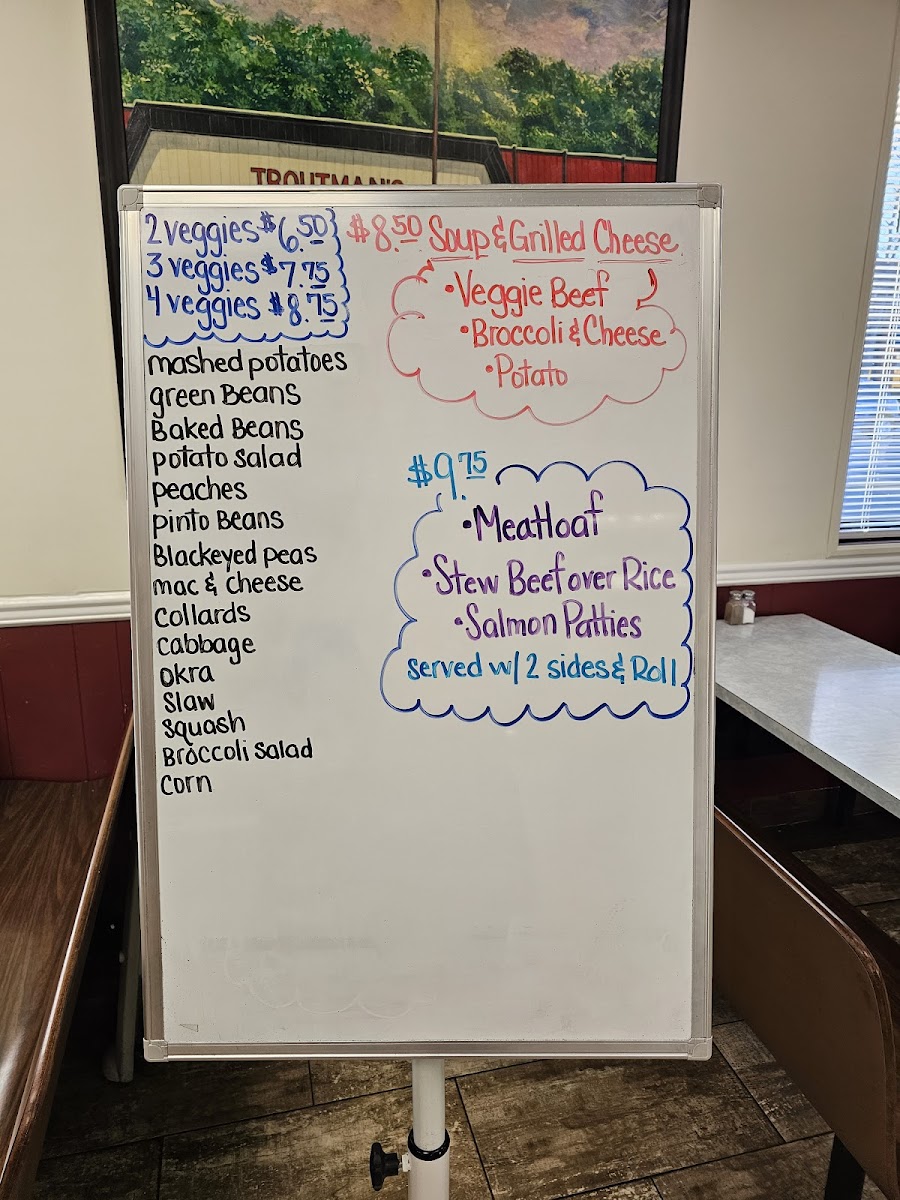 TROUTMAN'S
2 veggies $6.50
3 veggies $7.75
4 veggies $8.75
mashed potatoes
green Beans
Baked Beans
potato salad
peaches
pinto Beans
Blackeyed peas
mac & cheese
collards
cabbage
okra
Slaw
Squash
Broccoli salad
corn
$8.50 Soup & Grilled Cheese
•Veggie Beef
•Broccoli & Cheese
•Potato
$9.75
•Meatloaf
•Stew Beef over Rice
•Salmon Patties
served w/ 2 sides & Roll